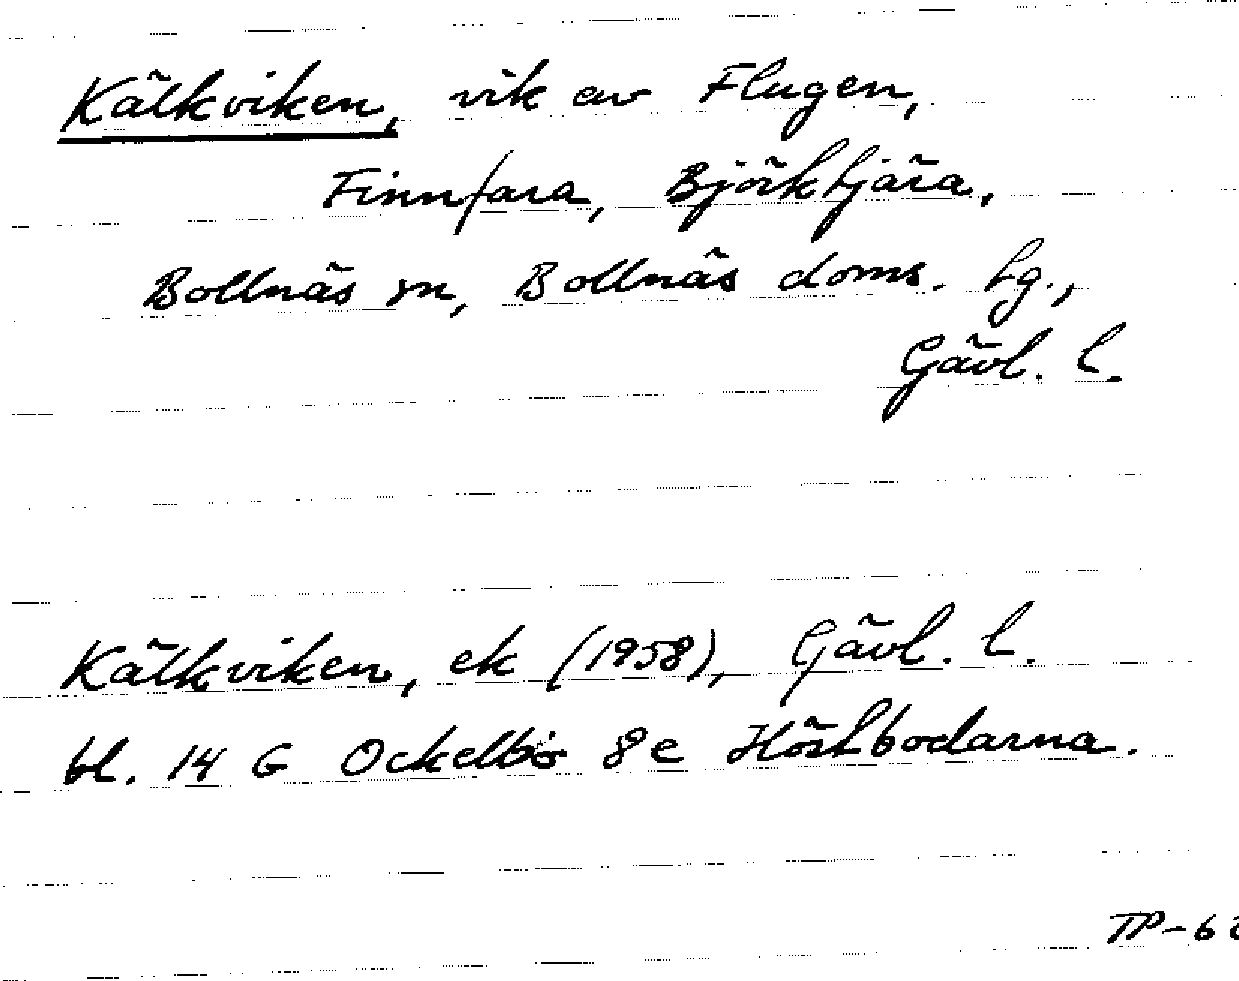 Kälkviken, vik av Flugen,
Finnfara, Björktjära,
Bollnäs sn, Bollnäs doms. tg.,
Gävl. l.
Kälkviken, ek (1958), Gävl. l.
bl. 14 G Ockelbo 8e Höstbodarna.
TP-6